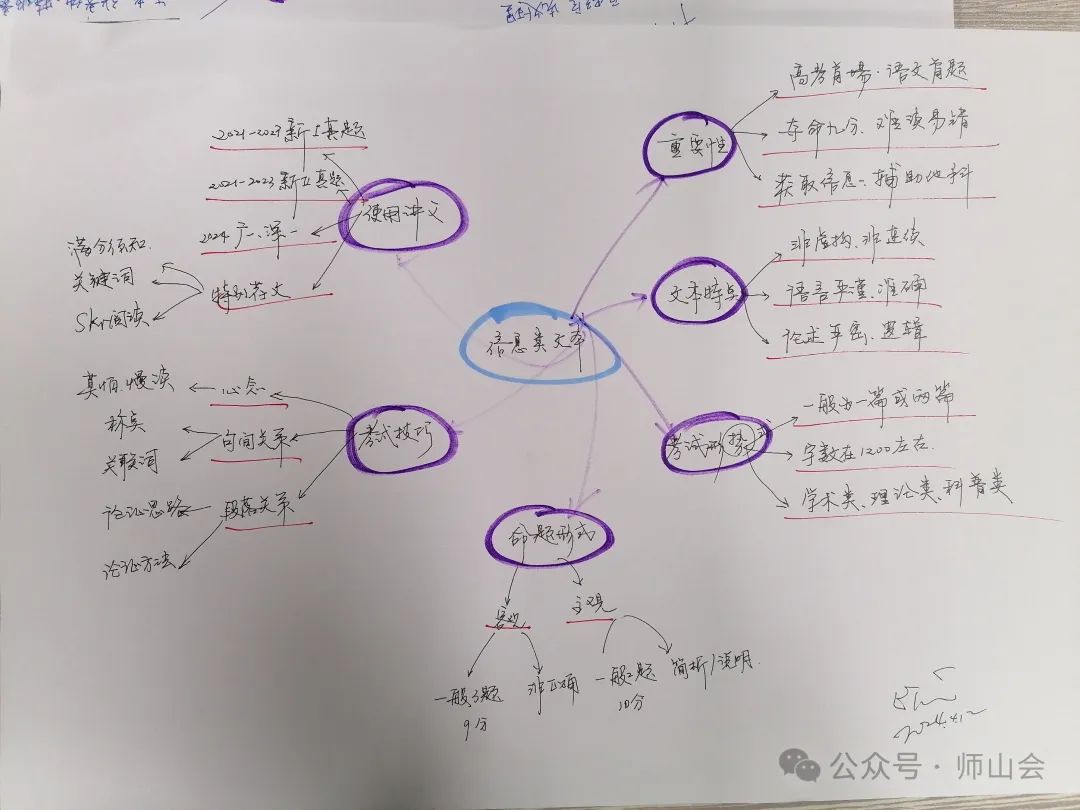 信息类文本
重要性
高考首場·语文首题
夺命九分、难读易错
获取信息、辅助他科
文本特点
非虚构、非连续
语言平谨、准确
论述严密、逻辑
考试形势式
一般为一篇或两篇
字数在1200左右.
学术类、理论类、科普类
命题形式
客观
一般3题
9分
非正确
主观
一般2题
10分
简析/说明.
考试技巧
心态
莫怕.慢读
句间关系
称点
关联词
段落关系
论证思路
论证方法
使用讲义
2021-2023新I真题
2021-2023新II真题
2024 广一、深一
特别荐文
满分须知.
关键词
2024.4.12
公众号·师山会